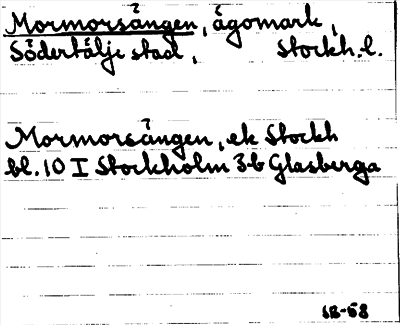 Mormorsängen, ägomark,
Södertälje stad, Stockh. l.
Mormorsängen, ek Stockh
bl. 10 I Stockholm 3b Glasberga